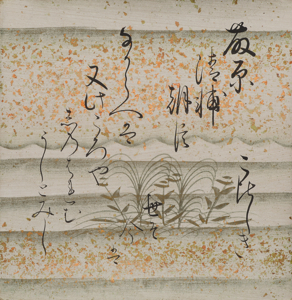 藤原
清輔
朝臣
なからへは
又此ころや
しのはれむ
うしとみし
世そ
今は
こひしき